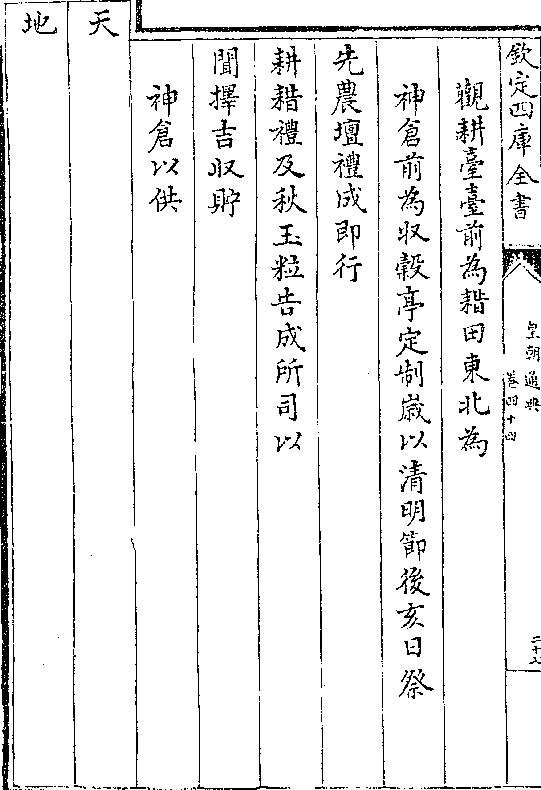 欽定四庫全書
皇朝通典
卷四十四
觀耕臺臺前為耤田東北為
神倉前為収穀亭定制嵗以清明節後亥日祭
先農壇禮成即行
耕耤禮及秋玉粒告成所司以
聞擇吉収貯
神倉以供
天
地